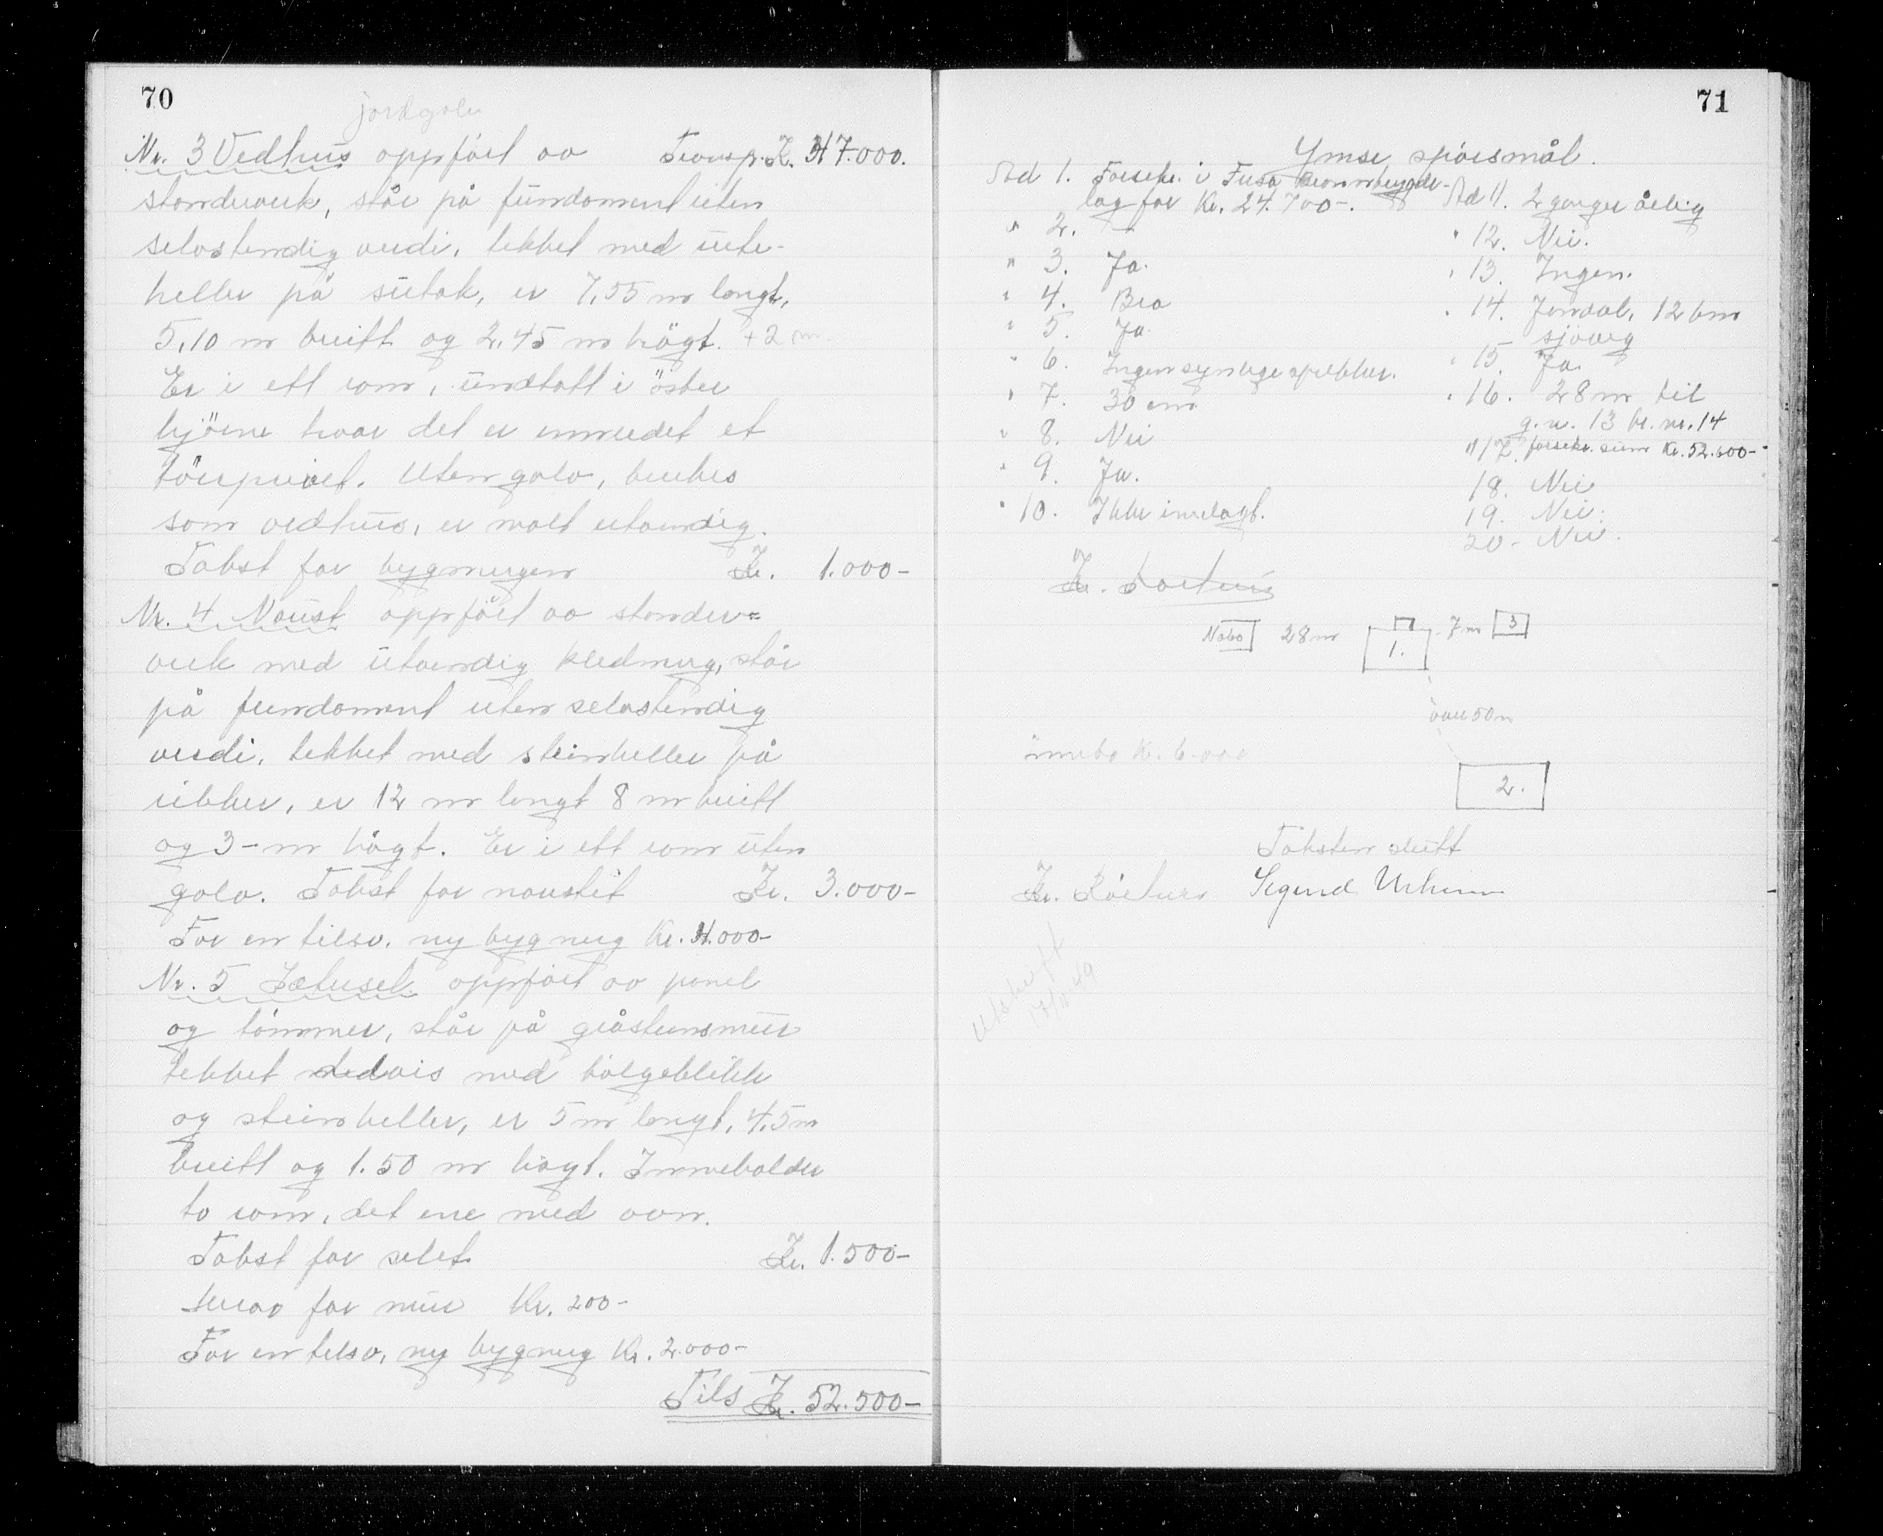 70
jordgolv
Nr. 3 Vedhus oppført av Transp. Kr. 47.000.
stenderverk, står på fundament uten
selvstendig verdi, tekket med
heller på sutak, er 7,55 m langt,
5,10 m breitt og 2,45 m høgt. +2 m
Er i ett rom, undtatt i öster
hjörne hvor det er innredet et
törrprivet. Uten golv, brukes
som vedhus, er malt utvendig.
Takst for bygningen Kr. 1.000-
Nr. 4 Naust oppført av stender=
verk med utvendig kledning, står
på fundament uten selvstendig
verdi, tekket med steinheller på
ribber, er 12 m langt 8 m breitt
og 3- m høgt. Er i ett rom uten
golv. Takst for naustet Kr. 3.000-
For en tilsv. ny bygning Kr. 4.000-
Nr. 5 Sætersel. oppført av panel
og tömmer, står på gråsteinsmur
tekket delvis med bølgeblikk
og steinheller, er 5 m langt, 4,5 m
breitt og 1.50 m høgt. Inneholder
to rom, det ene med ovn.
Takst for selet Kr. 1.500-
herav for mur Kr. 200-
For en tilsv. ny bygning Kr. 2.000-
Tils Kr. 52.500-
71
Ymse spørsmål.
Ad 1. Forsikr. i Fusa Brannbygde-
lag for Kr. 24.700-.
" 2. -
" 3. Ja.
" 4. Bra
" 5. Ja.
" 6. Ingen synlege sprekker.
" 7. 30 cm
" 8. Nei
" 9. Ja.
" 10. Ikke innlagt.
Ad 11. 2 ganger årlig
" 12. Nei.
" 13. Ingen.
" 14. 12 km
sjøveg
" 15. Ja.
" 16. 28 m til
g.n. 13 br. nr. 14
" 17. forsikr. sum Kr. 52.600-
18. Nei
19. Nei.
20- Nei.
Kr.
Nabo 28 m 1. 7 m 3
over 50 m
innbo Kr. 6.000
2.
Taksten slutt
Kr. Sigurd
Utskrift